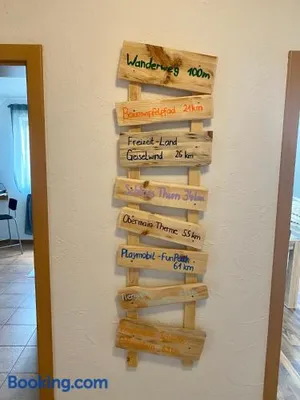 Wanderweg 100m
Baumwipfelpfad 21km
Freizeit-Land
Geiselwind 26 km
Obermain Therme 55 km
Playmobil-FunPark
61 km
Booking.com